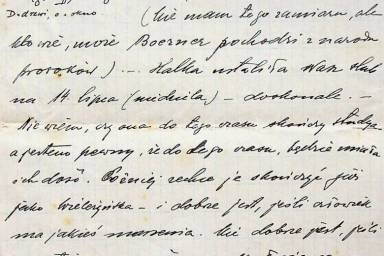 D-drzwi, o-okno
(Nie mam tego zamiaru, ale
kto wie, może Boerner pochodzi z narodu
proroków) -.- Halka ustaliła Wasz ślub
na 14 lipca (niedziela) - doskonale. -
Nie wiem, czy ona do tego czasu skończy studya
a jestem pewny, że do tego czasu, będzie miała
ich dość. Później zechce je skończyć już
jako - i dobrze jest, jeśli człowiek
ma jakieś marzenia. Nie dobrze jest, jeśli